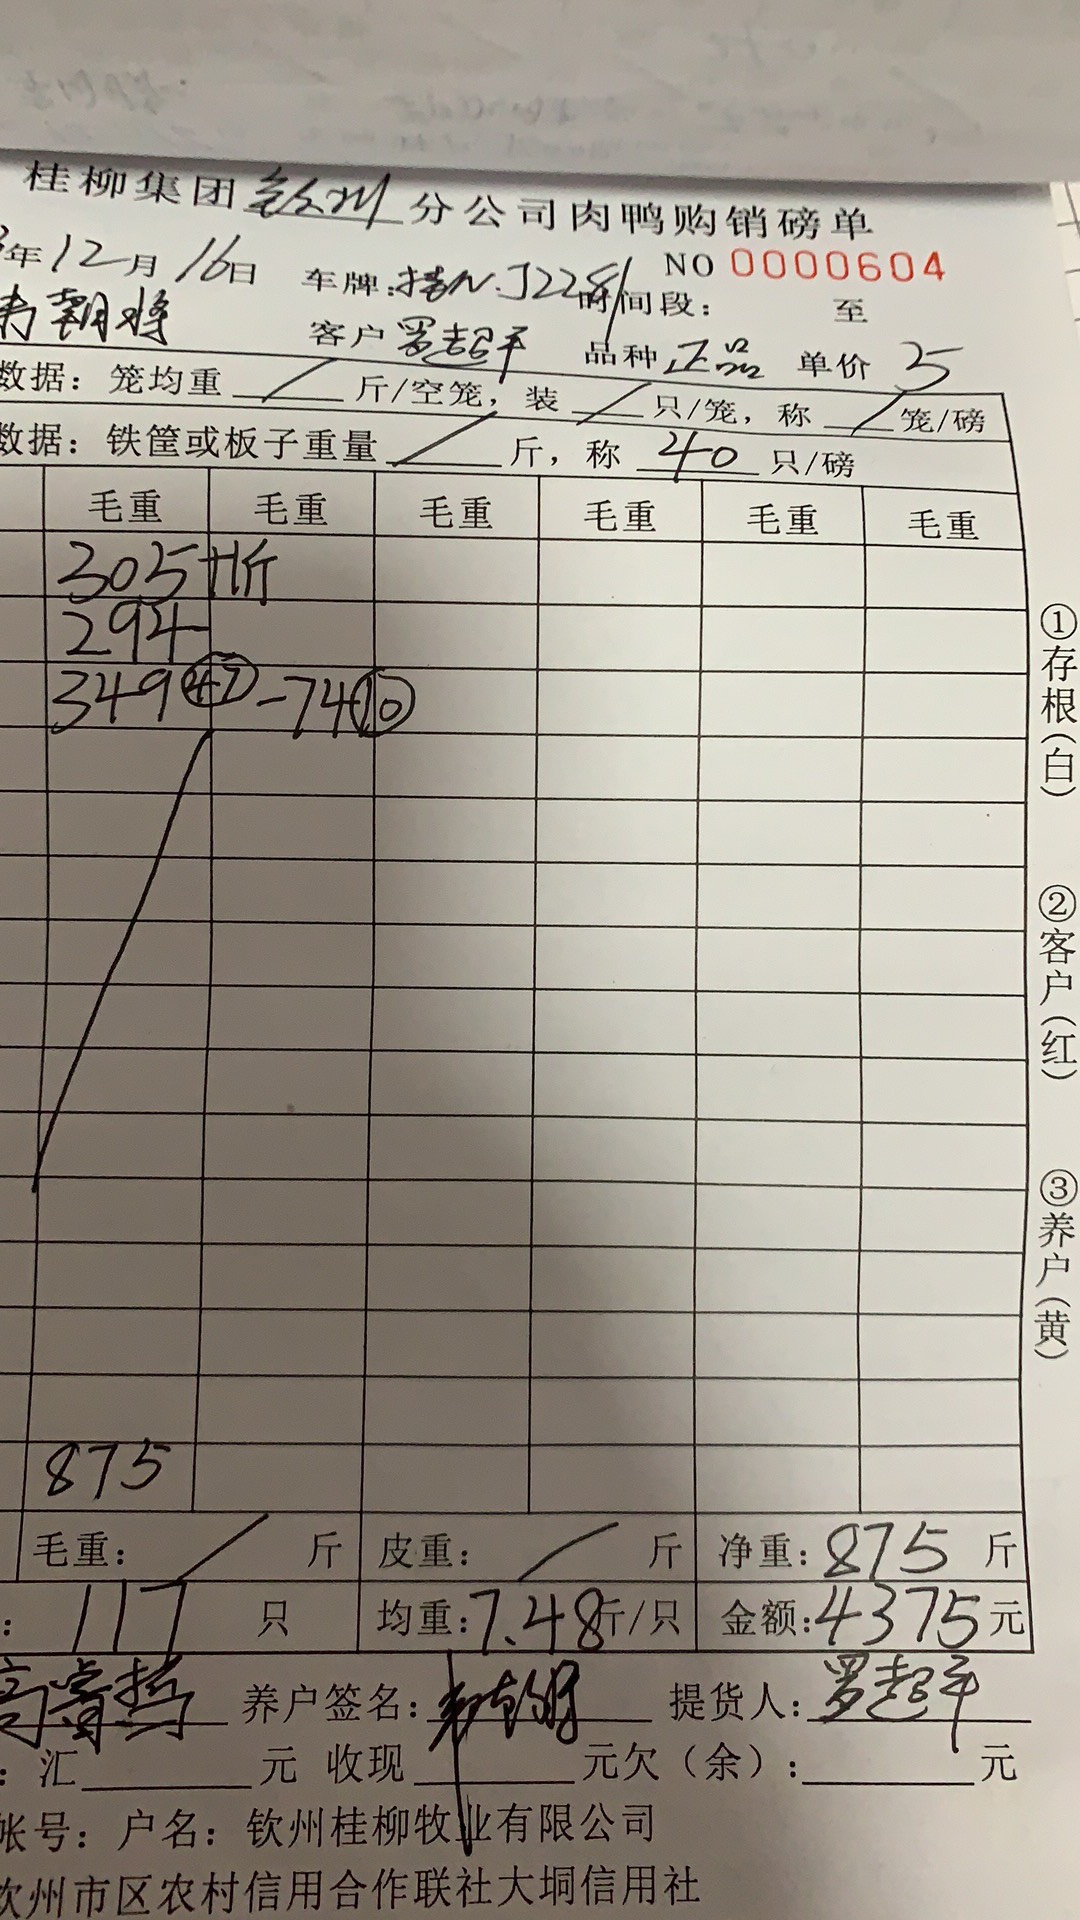 桂柳集团钦州分公司肉鸭购销磅单
年12月16日 车牌:桂N.J2281 NO 0000604
时间段: 至
朝将 客户罗超平 品种正品 单价5
数据: 笼均重 / 斤/空笼, 装 / 只/笼, 称 / 笼/磅
数据: 铁筐或板子重量 / 斤, 称 40 只/磅
毛重 毛重 毛重 毛重 毛重 毛重
305 斤
294
349 47 -74 10
875
毛重: / 斤 皮重: / 斤 净重: 875 斤
: 117 只 均重: 7.48斤/只 金额: 4375元
养户签名: 提货人: 罗超平
: 汇 元 收现 元欠(余): 元
帐号: 户名: 钦州桂柳牧业有限公司
钦州市区农村信用合作联社大垌信用社
①存根(白)
②客户(红)
③养户(黄)